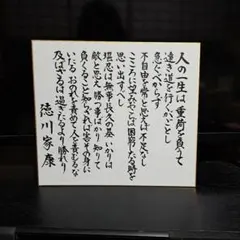 人の一生は重荷を負うて
遠き道を行くがごとし
急ぐべからず
不自由を常と思えば不足なし
こころに望みおこらば困窮したる時を
思い出すべし
堪忍は無事長久の基 いかりは
敵と思え 勝つ事ばかり知りて
負くることを知らざれば害その身に
いたる おのれを責めて人を責むるな
及ばざるは過ぎたるより勝れり
徳川家康